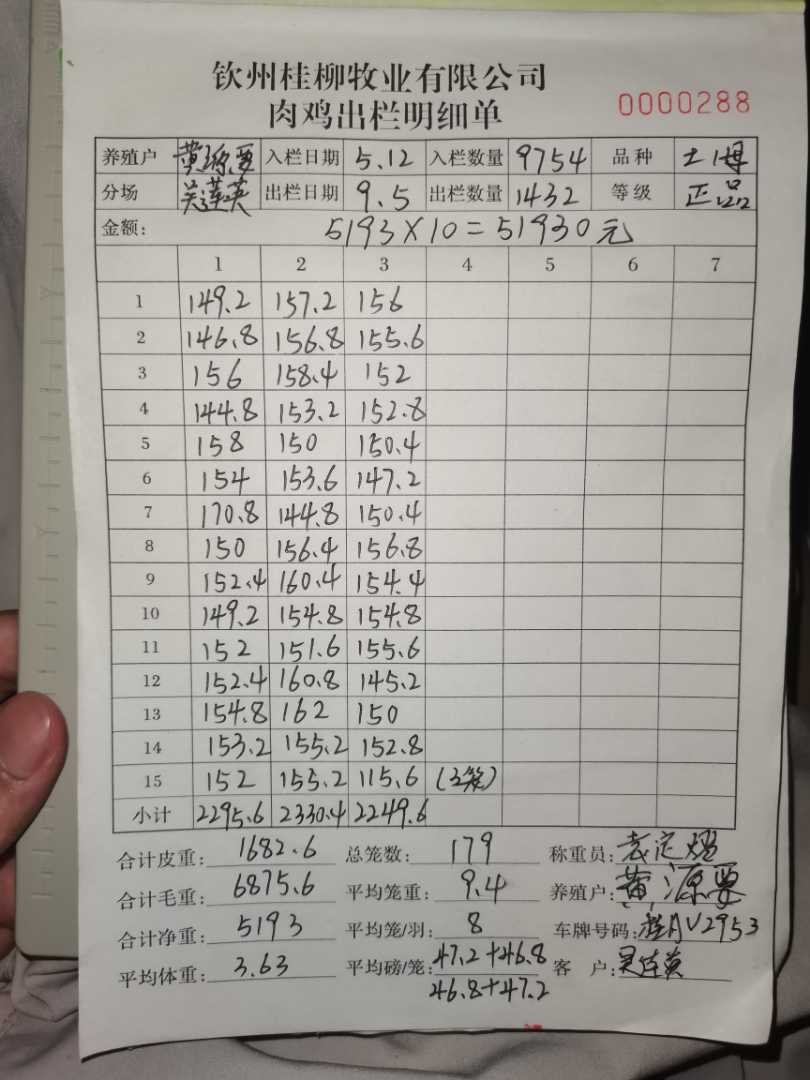 钦州桂柳牧业有限公司
肉鸡出栏明细单
0000288
养殖户 黄源要 入栏日期 5.12 入栏数量 9754 品种 土1母
分场 吴莲英 出栏日期 9.5 出栏数量 1432 等级 正品
金额: 5193×10=51930元
1 2 3 4 5 6 7
1 149.2 157.2 156
2 146.8 156.8 155.6
3 156 158.4 152
4 144.8 153.2 152.8
5 158 150 150.4
6 154 153.6 147.2
7 170.8 144.8 150.4
8 150 156.4 156.8
9 152.4 160.4 154.4
10 149.2 154.8 154.8
11 152 151.6 155.6
12 152.4 160.8 145.2
13 154.8 162 150
14 153.2 155.2 152.8
15 152 155.2 115.6 (3笼)
小计 2295.6 2330.4 2249.6
合计皮重: 1682.6 总笼数: 179 称重员:
合计毛重: 6875.6 平均笼重: 9.4 养殖户: 黄源要
合计净重: 5193 平均笼/羽: 8 车牌号码: 桂AV2953
平均体重: 3.63 平均磅/笼: 47.2+46.8 客 户:
46.8+47.2